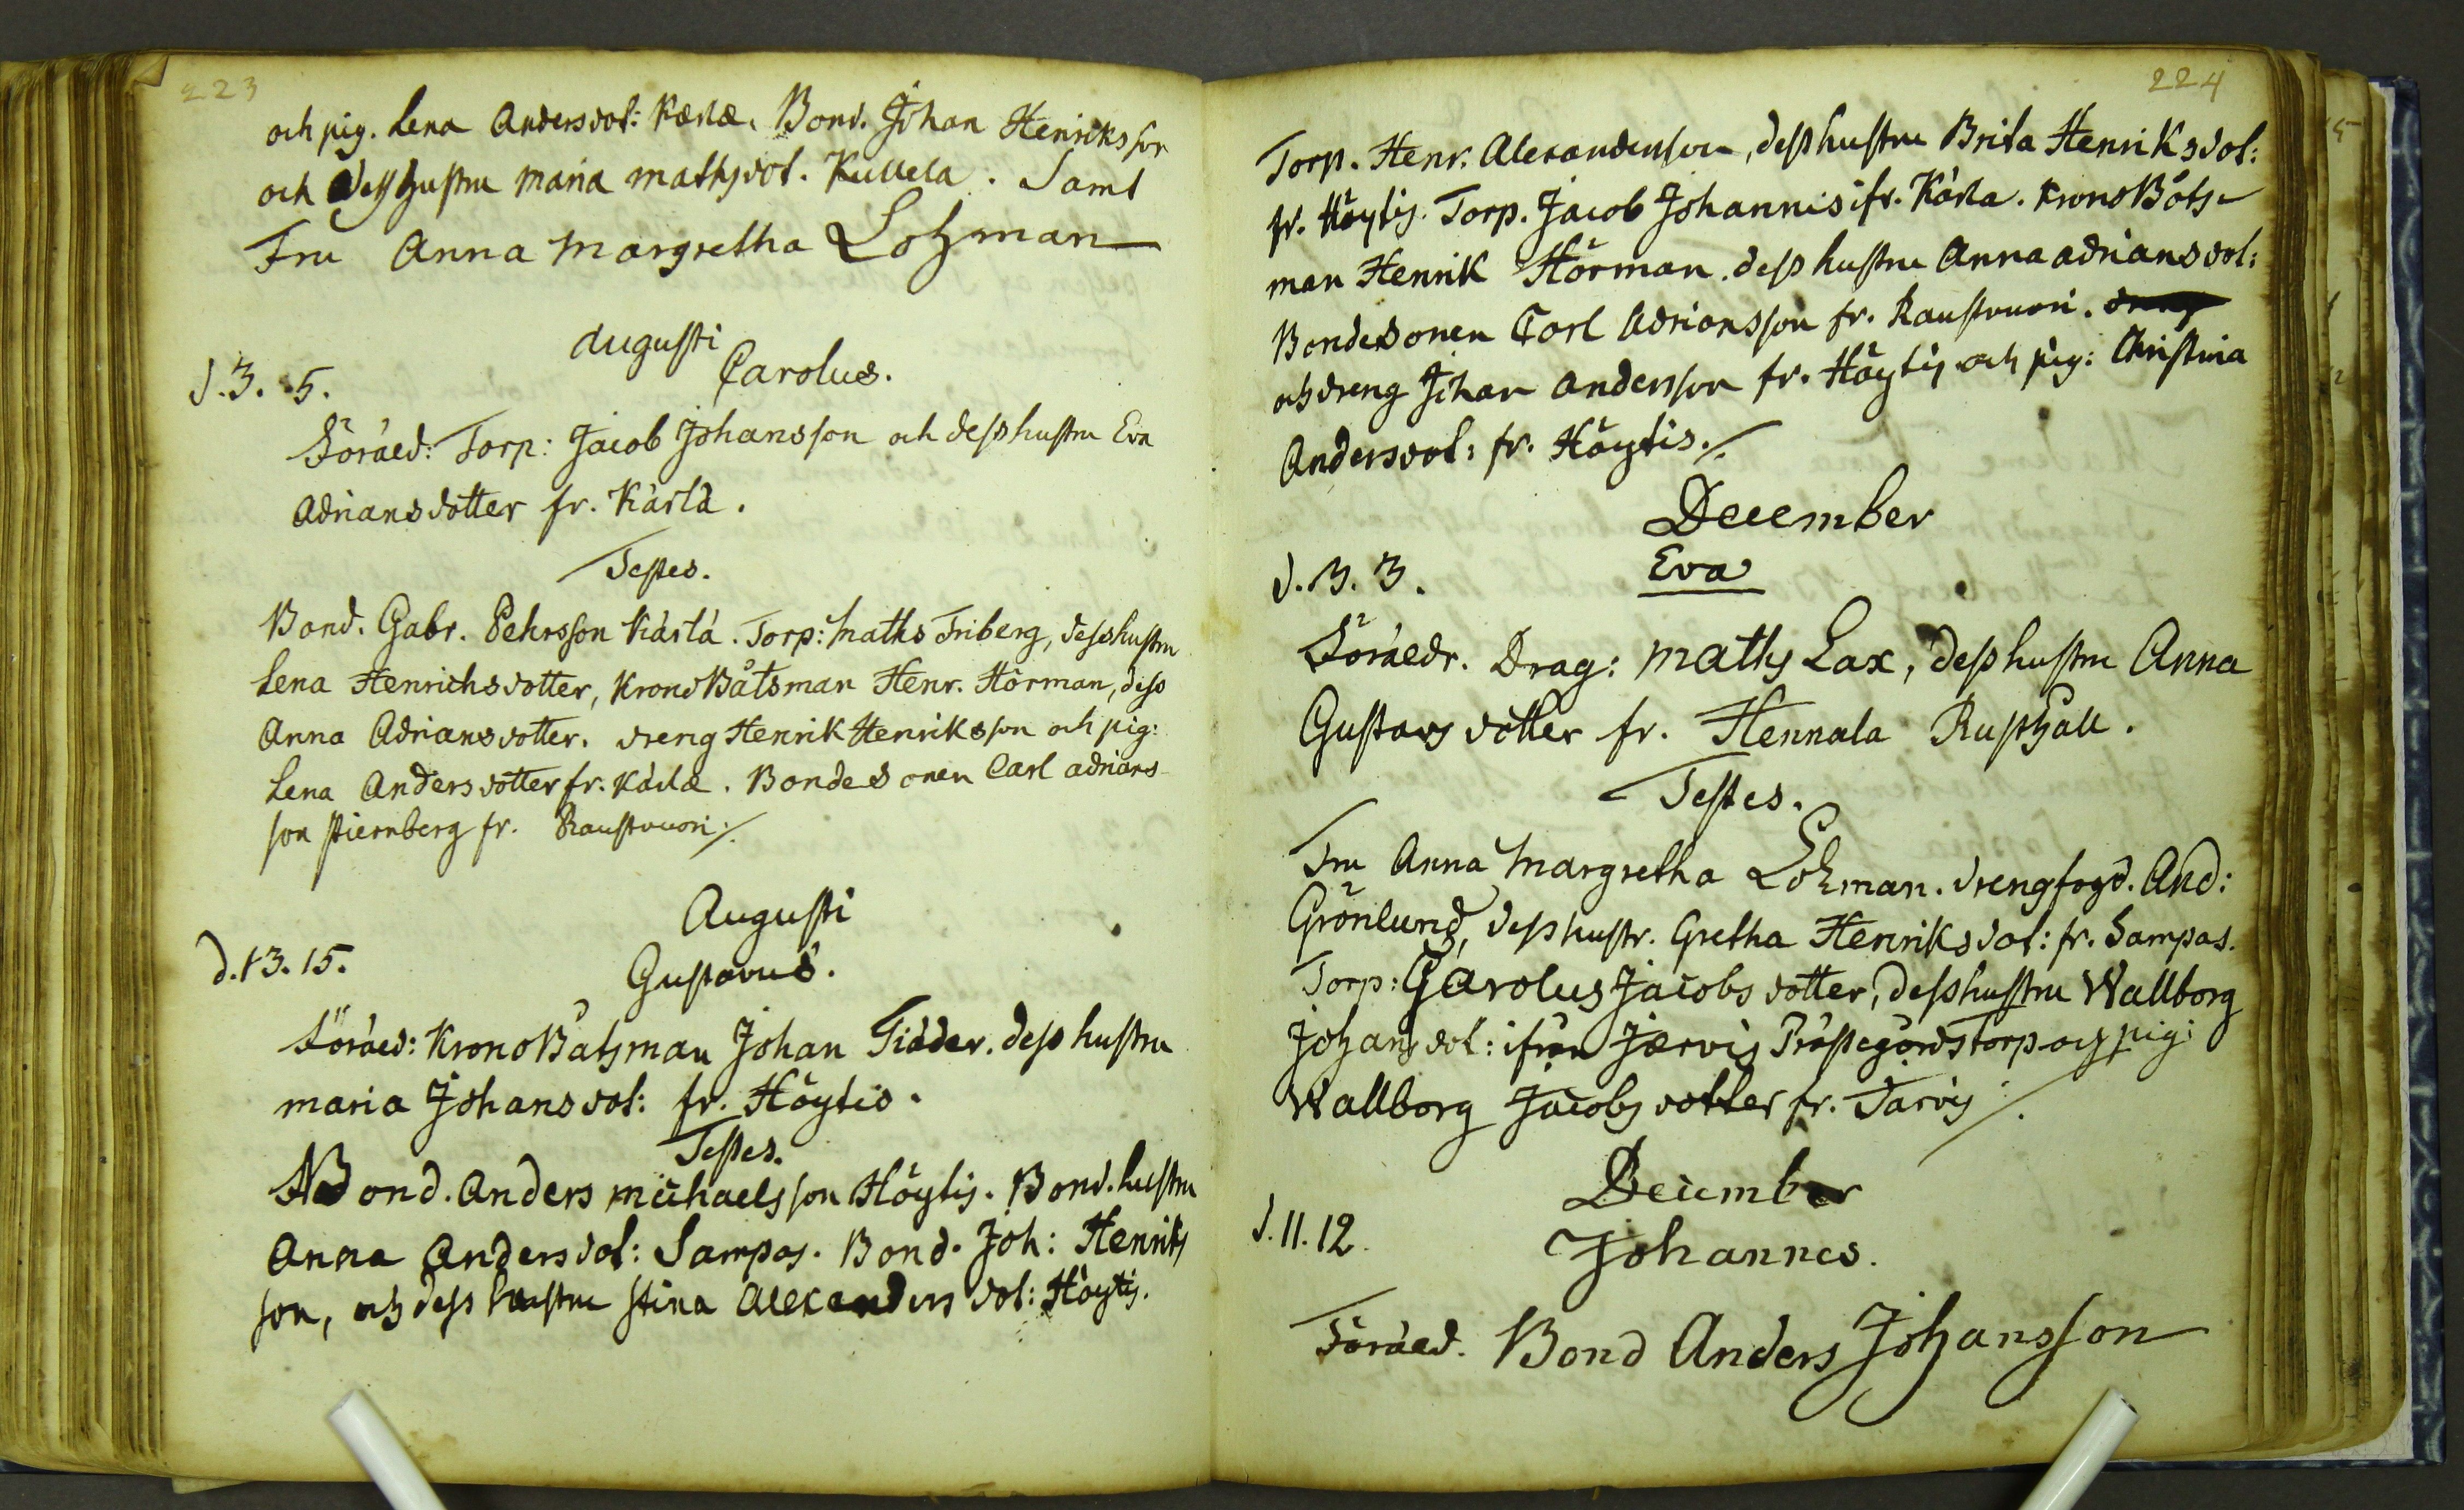 223
och pig. Lena Andersdot: Kærlæ. Bond. Johan Henriksson
och dess hustru Maria Mathsdot. Kullela. Samt
Fru Anna Margretha Lohman
Augusti
d. 3. 5. Carolus.
Föräld: Torp: Jacob Johansson och dess hustru Eva
Adriansdotter fr. Kärlä.
Testes.
Bond. Gabr. Pehrsson Kärlä. Torp: Maths Friberg, dess hustru
Lena Henrichsdotter, Krono Båtsman Henr. Hörman, dess
Anna Adriansdotter. dreng Henrik Henriksson och pig:
Lena Andersdotter fr. Kärlæ. Bondesonen Carl Adrians-
son Stiernberg fr. Raustvuori./.
Augusti
d. 13. 15. Gustavus.
Föräed: Krono Båtsman Johan Tidder. dess hustru
Maria Johansdot: fr. Höytis.
Testes.
Bond. Anders Michaelsson Höytis. Bond. hustru
Anna Andersdot: Sampas. Bond. Joh: Henriks
son, och dess hustru Stina Alexandersdot: Höytis.
224
Torp. Henr. Alexandersson, dess hustru Brita Henriksdot:
fr. Höytis. Torp. Jacob Johannis ifr. Kärla. Krono Båts-
man Henrik Hörman. dess hustru Anna Adriansdot:
Bondesonen Carl Adriansson fr. Raustvuori.
och dreng Johan Andersson fr. Höytis och pig: Christina
Andersdot: fr. Höytis./.
December
d. 3. 3. Eva
Föräedr. Drag: Maths Lax, dess hustru Anna
Gustavsdotter fr. Hennala Rusthåll.
Testes.
Fru Anna Margretha Lohman. drengfogd. And:
Grönlund, dess hustr. Gretha Henriksdot: fr. Sampas.
Torp: Carolus Jacobsdotter, dess hustru Wallborg
Johansdot: ifrån Jærvis Prästegårdstorp och pig:
Wallborg Jacobsdotter fr. Järvis /.
December
d. 11. 12. Johannes.
Föräed. Bond Anders Johansson